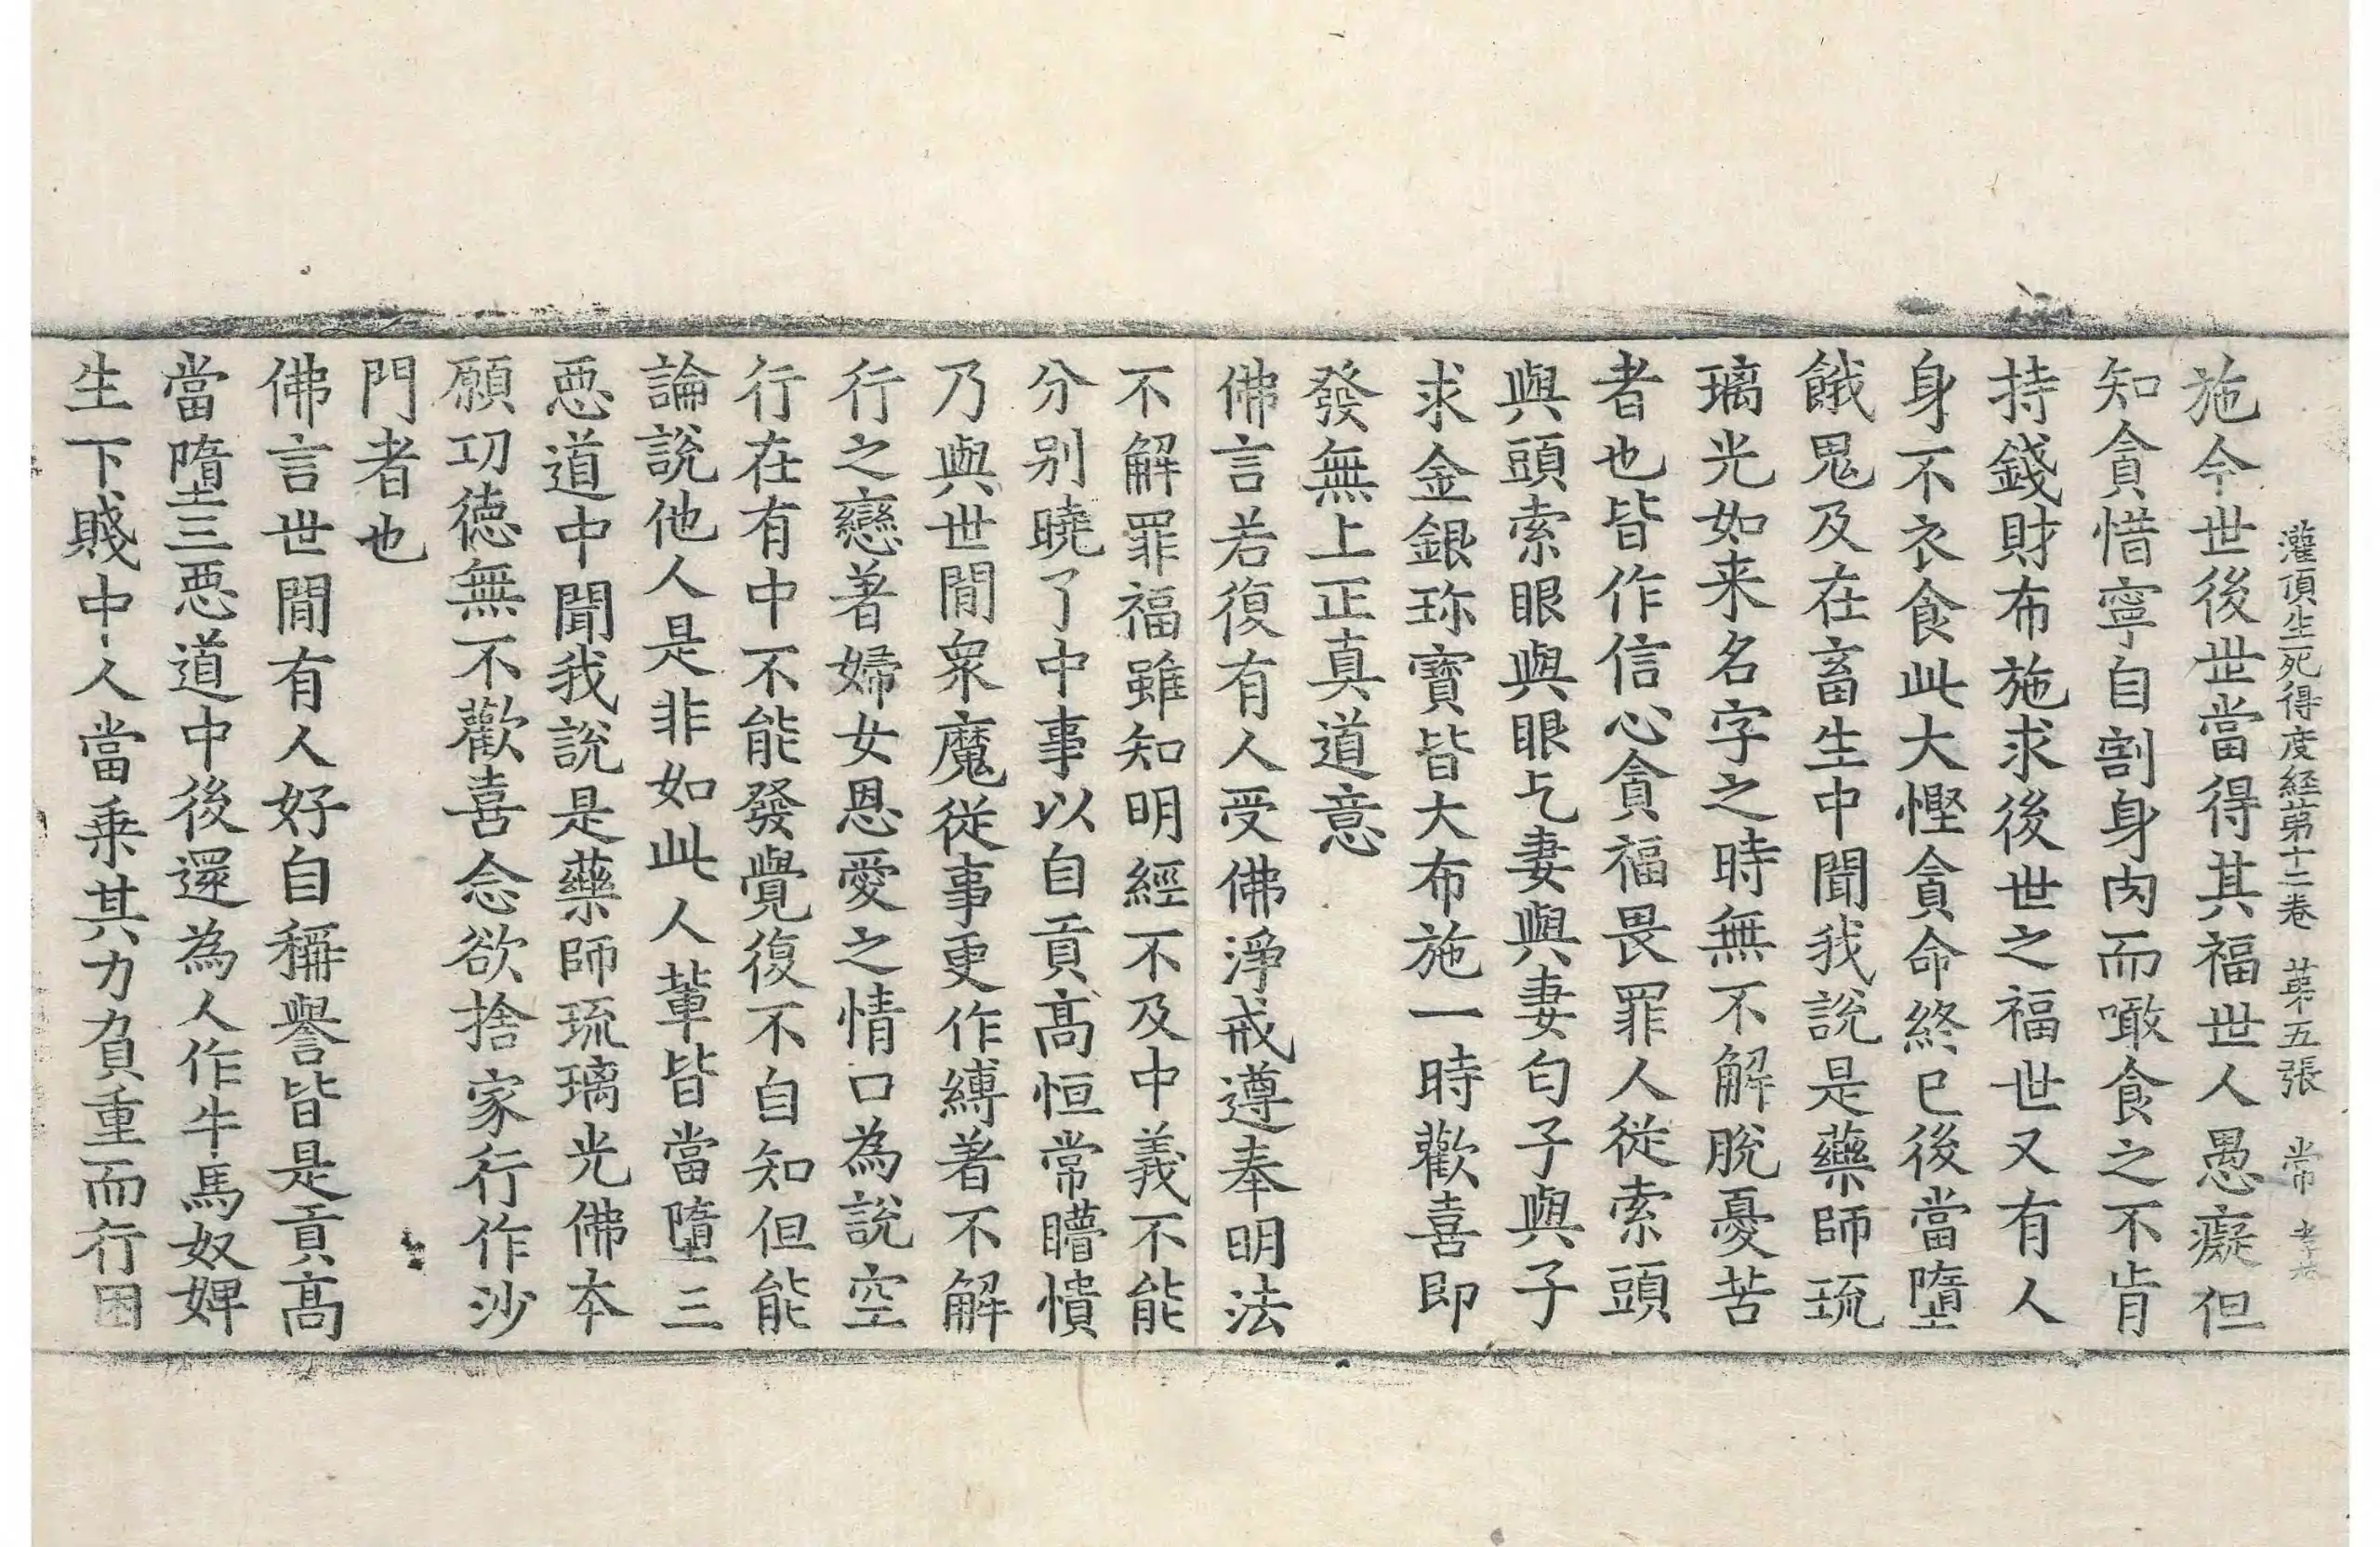 灌頂生死得度経苐十二卷 苐五張 常
施今世後世當得其福世人愚癡但
知貪惜寧自割身肉而噉食之不肯
持錢財布施求後世之福世又有人
身不衣食此大慳貪命終已後當墮
餓鬼及在畜生中聞我說是藥師琉
璃光如来名字之時無不解脫憂苦
者也皆作信心貪福畏罪人從索頭
與頭索眼與眼乞妻與妻匃子與子
求金銀珎寳皆大布施一時歡喜即
發無上正真道意
佛言若復有人受佛淨戒遵奉明法
不解罪福雖知明經不及中義不能
分别曉了中事以自貢髙恒常瞢憒
乃與世間衆魔從事更作縛著不解
行之戀著婦女恩愛之情口為說空
行在有中不能發覺復不自知但能
論說他人是非如此人軰皆當墮三
惡道中聞我說是藥師琉璃光佛本
願功德無不歡喜念欲捨家行作沙
門者也
佛言世間有人好自稱譽皆是貢髙
當墮三惡道中後還為人作牛馬奴婢
生下賤中人當乗其力負重而行困